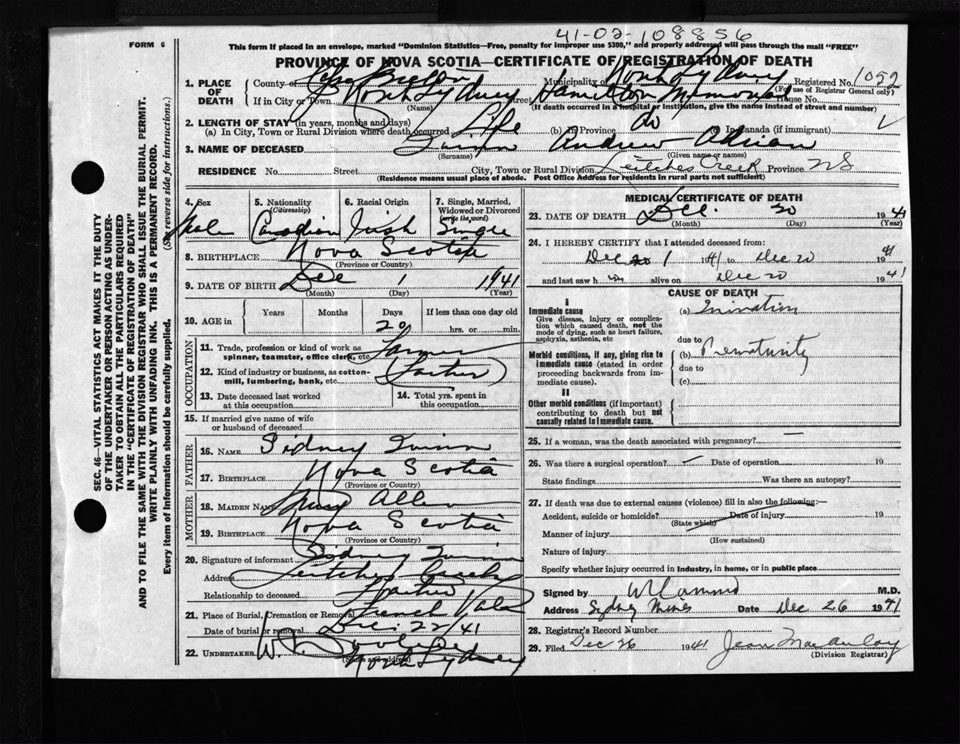 41-02-108856
FORM 6
This form if placed in an envelope, marked "Dominion Statistics—Free, penalty for improper use $300," and properly addressed will pass through the mail "FREE"
PROVINCE OF NOVA SCOTIA—CERTIFICATE OF REGISTRATION OF DEATH
1. PLACE OF DEATH County of Cape Breton Municipality of North Sydney Registered No. 1092
(For use of Registrar General only)
If in City or Town North Sydney Street Hamilton Memorial House No.
(Name) (If death occurred in a hospital or institution, give the name instead of street and number)
2. LENGTH OF STAY (in years, months and days)
(a) In City, Town or Rural Division where death occurred Life (b) In Province do (c) In Canada (if immigrant)
3. NAME OF DECEASED Andrew Adrian
(Surname) (Given name or names)
RESIDENCE No. Street City, Town or Rural Division Leitches Creek Province NS
(Residence means usual place of abode. Post Office Address for residents in rural parts not sufficient)
4. Sex 5. Nationality (Citizenship) 6. Racial Origin 7. Single, Married, Widowed or Divorced (write the word)
Male Canadian Irish Single
8. BIRTHPLACE Nova Scotia
(Province or Country)
9. DATE OF BIRTH Dec 1 1941
(Month) (Day) (Year)
10. AGE in Years Months Days If less than one day old
20 hrs. or min.
OCCUPATION
11. Trade, profession or kind of work as spinner, teamster, office clerk, etc. Farmer
12. Kind of industry or business, as cotton-mill, lumbering, bank, etc. (Father)
13. Date deceased last worked at this occupation
14. Total yrs. spent in this occupation
15. If married give name of wife or husband of deceased
FATHER
16. NAME Sidney
17. BIRTHPLACE Nova Scotia
(Province or Country)
MOTHER
18. MAIDEN NAME
19. BIRTHPLACE Nova Scotia
(Province or Country)
20. Signature of informant Sydney
Address Leitches Creek
Relationship to deceased Father
21. Place of Burial, Cremation or Removal French Vale
Date of burial or removal Dec 22/41
22. UNDERTAKER
(Name and address)
North Sydney
MEDICAL CERTIFICATE OF DEATH
23. DATE OF DEATH Dec. 20 1941
(Month) (Day) (Year)
24. I HEREBY CERTIFY that I attended deceased from:
Dec 1 1941 to Dec 20 1941
and last saw h alive on Dec 20 1941
CAUSE OF DEATH
I
Immediate cause
Give disease, injury or complication which caused death, not the mode of dying, such as heart failure, asphyxia, asthenia, etc
(a) Inanition
due to
Morbid conditions, if any, giving rise to immediate cause (stated in order proceeding backwards from immediate cause).
(b) Prematurity
due to
(c)
II
Other morbid conditions (if important) contributing to death but not causally related to immediate cause.
25. If a woman, was the death associated with pregnancy? —
26. Was there a surgical operation? Date of operation 19
State findings Was there an autopsy?
27. If death was due to external causes (violence) fill in also the following:
Accident, suicide or homicide? Date of injury 19
(State which)
Manner of injury
(How sustained)
Nature of injury
Specify whether injury occurred in industry, in home, or in public place
Signed by M.D.
Address Sydney Mines Date Dec 26 1941
28. Registrar's Record Number
29. Filed Dec 26 1941 Jean MacAulay
(Division Registrar)
SEC. 46—VITAL STATISTICS ACT MAKES IT THE DUTY
OF THE UNDERTAKER OR PERSON ACTING AS UNDER-
TAKER TO OBTAIN ALL THE PARTICULARS REQUIRED
IN THE "CERTIFICATE OF REGISTRATION OF DEATH"
AND TO FILE THE SAME WITH THE DIVISION REGISTRAR WHO SHALL ISSUE THE BURIAL PERMIT.
WRITE PLAINLY WITH UNFADING INK. THIS IS A PERMANENT RECORD.
Every item of information should be carefully supplied. (See reverse side for instructions.)